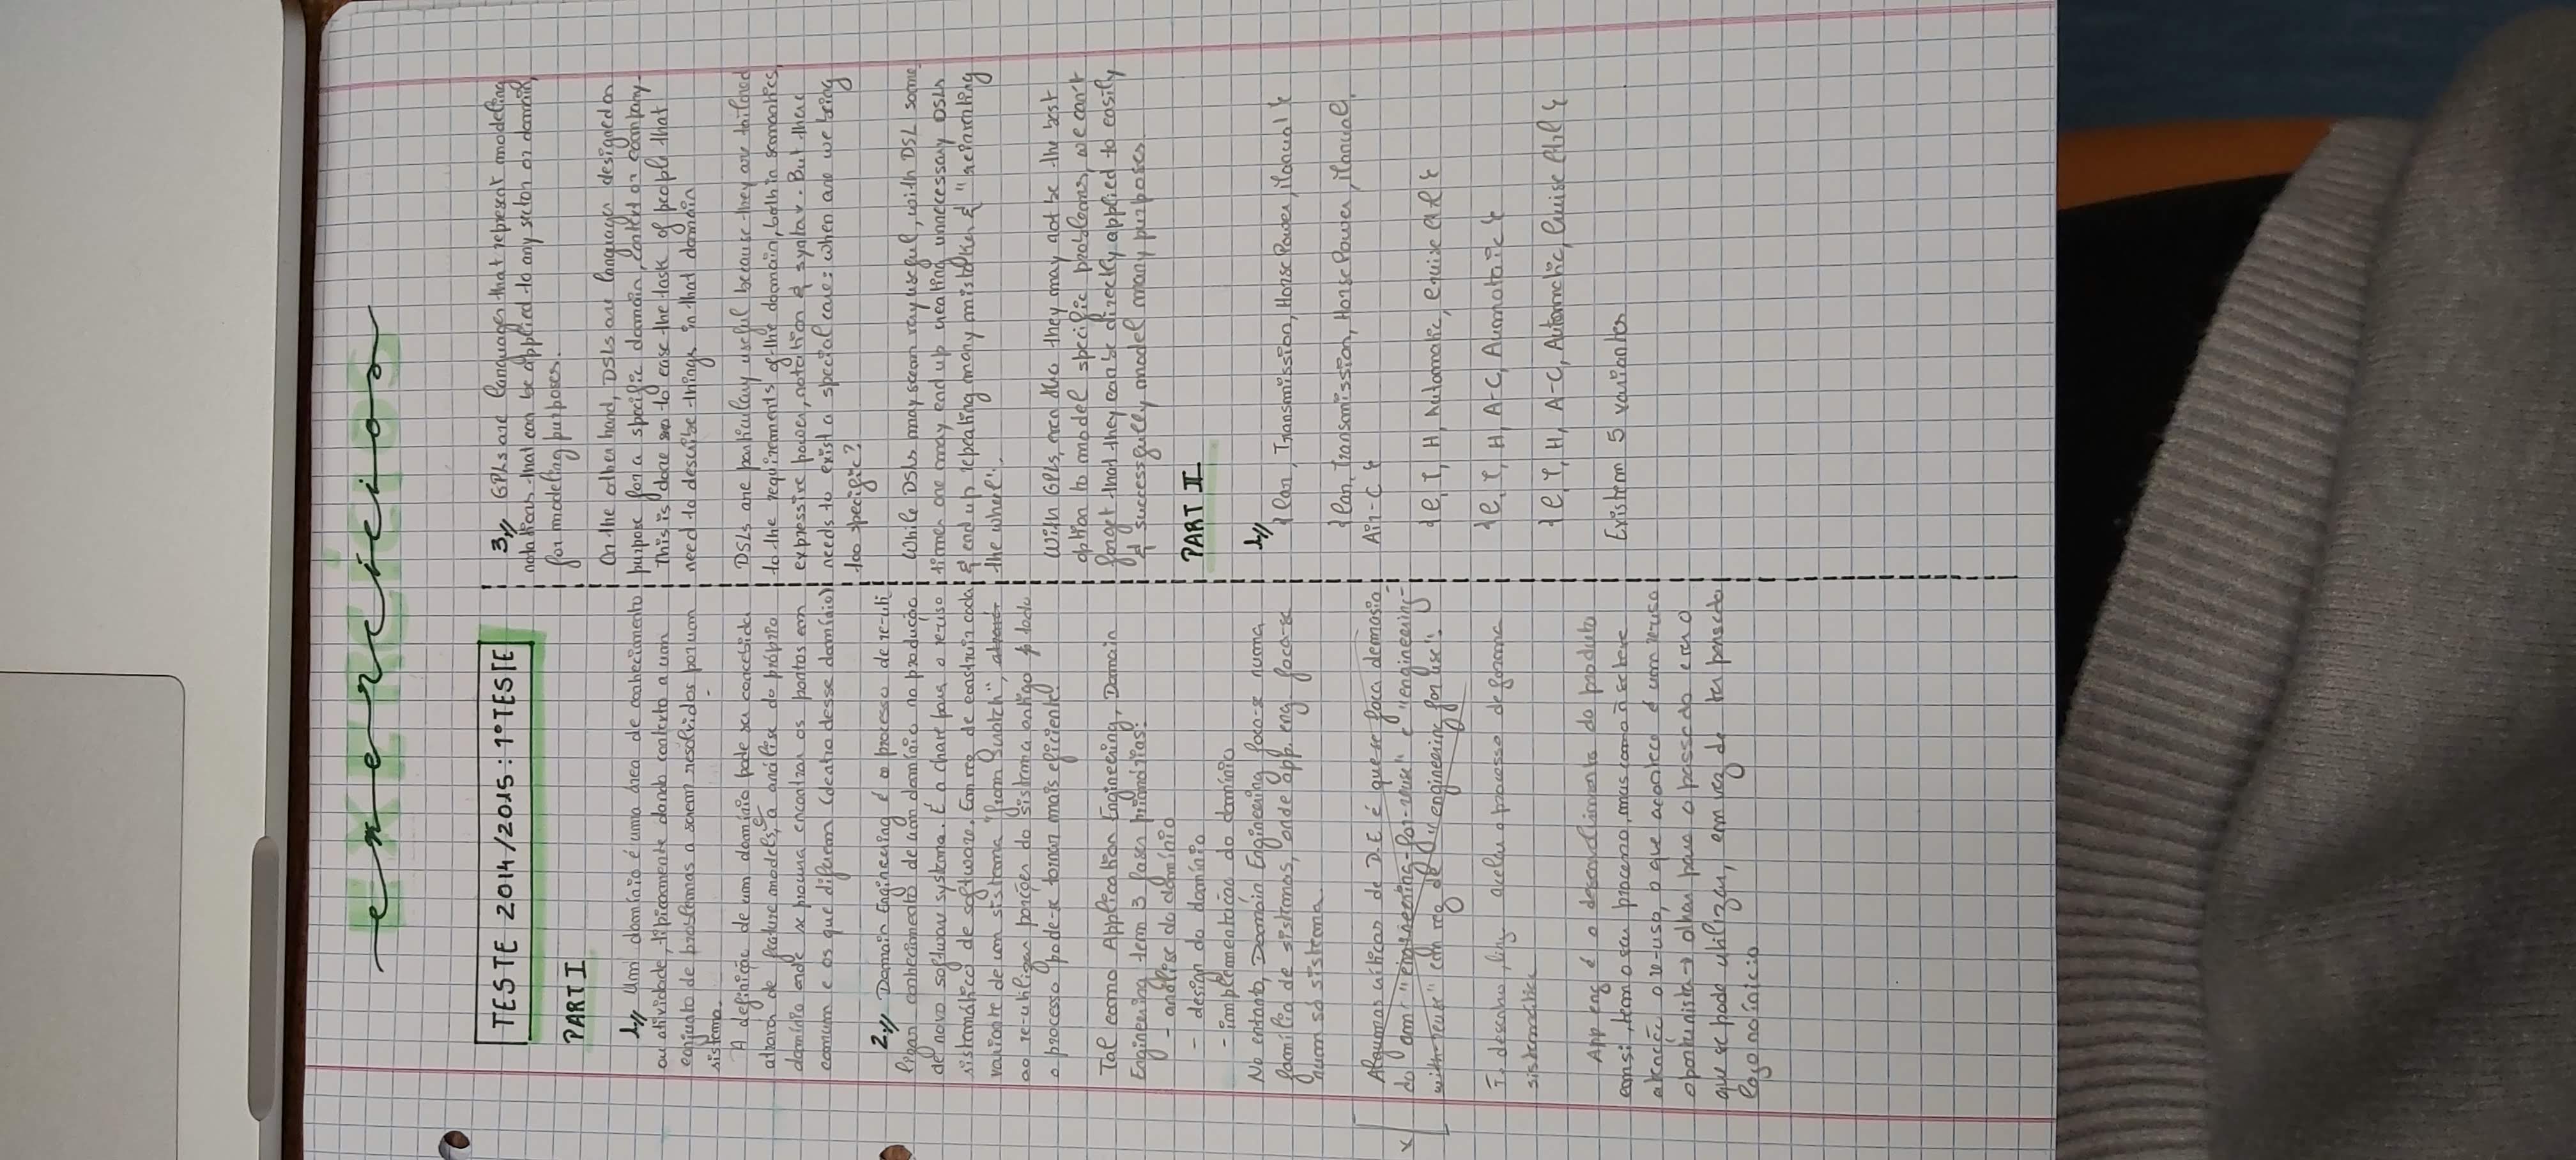 EXERCÍCIOS
exercicios
TESTE 2014/2015: 1º TESTE
PART I
1,, Um domínio é uma área de conhecimento
ou atividade tipicamente dando contexto a um
conjunto de problemas a serem resolvidos por um
sistema.
A definição de um domínio pode ser concebida
através de feature models, e a análise do próprio
domínio onde se procura encontrar os pontos em
comum e os que diferem (dentro desse domínio)
2,, Domain Engineering é o processo de re-utili
conhecimento de um domínio na produção
de novo software systems. É a chave para o re-uso
sistemático de software. Em vez de construir cada
variante de um sistema "from scratch",
ao re-utilizar porções do sistema antigo p todo
o processo pode-se tornar mais eficiente.
Tal como Application Engineering, Domain
Engineering tem 3 fases primárias:
- análise do domínio
- design do domínio
- implementação do domínio
No entanto, Domain Engineering foca-se numa
família de sistemas, onde app. eng foca-se
num só sistema.
Algumas críticas de D.E é que se foca demasia
do em "engineering-for-reuse" e "engineering-
with-reuse" em vez de "engineering for use".
desenho, acelera processo de forma
sistemática
App eng é o desenvolvimento do produto
em si, tem o seu processo, mas como ñ se teve
atenção o re-uso, o que acontece é um re-uso
oportunista → olhar para o passado e ver o
que se pode utilizar, em vez de ter pensado
logo no início
3,, GPLs are languages that represent modeling
notations that can be applied to any sector or domain,
for modeling purposes.
On the other hand, DSLs are languages designed on
purpose for a specific domain, context or company.
This is done so to ease the task of people that
need to describe things in that domain
DSLs are particulary useful because they are tailored
to the requirements of the domain, both in semantics,
expressive power, notation & syntax. But there
needs to exist a special care: when are we being
too specific?
While DSLs may seem very useful, with DSL some
times one may end up creating unnecessary DSLs
& end up repeating many mistakes & "reinventing
the wheel".
With GPLs, even tho they may not be the best
option to model specific problems, we can't
forget that they can be directly applied to easily
& successfully model many purposes.
PART II
1,,
{Car, Transmission, Horse Power, Manual}
{Car, Transmission, Horse Power, Manual,
Air-C}
{C, T, H, Automatic, Cruise Ctrl}
{C, T, H, A-C, Automatic}
{C, T, H, A-C, Automatic, Cruise Ctrl}
Existem 5 variantes